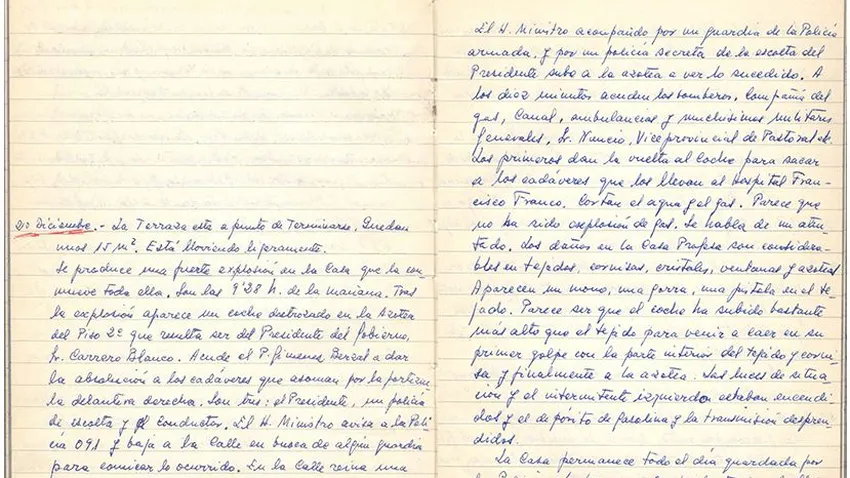 20 Diciembre.- La Terraza esta a punto de Terminarse. Quedan
unos 15 m². Está lloviendo ligeramente.
Se produce una fuerte explosión en la Casa que la con-
mueve toda ella. Son las 9'28 h. de la mañana. Tras
la explosión aparece un coche destrozado en la Azotea
del Piso 2º que resulta ser del Presidente del Gobierno,
Sr. Carrero Blanco. Acude el P. Gimenez Berzal a dar
la absolución a los cadáveres que asoman por la portezuela
delantera derecha. Son tres: el Presidente, un policía
de escolta y el Conductor. El H. Ministro avisa a la Poli-
cía 091 y baja a la Calle en busca de algún guardia
para comunicar lo ocurrido. En la Calle reina una
El H. Ministro acompañado por un guardia de la Policía
armada, y por un policía secreta de la escolta del
Presidente sube a la azotea a ver lo sucedido. A
los diez minutos acuden los bomberos, Compañía del
gas, Canal, ambulancias y muchísimos militares
Generales, Sr. Nuncio, Vice provincial de Pastoral etc.
Los primeros dan la vuelta al coche para sacar
a los cadáveres que los llevan al Hospital Fran-
cisco Franco. Cortan el agua y el gas. Parece que
no ha sido explosión de gas. Se habla de un aten-
tado. Los daños en la Casa Profesa son considera-
bles en tejados, cornisas, cristales, ventanas y azoteas
Aparecen un mono, una gorra, una pistola en el te-
jado. Parece ser que el coche ha subido bastante
más alto que el tejido para venir a caer en su
primer golpe con la parte interior del tejido y corni-
sa y finalmente a la azotea. Las luces de situa-
ción y el intermitente izquierdo estaban encendi-
dos y el depósito de gasolina y la transmisión despren-
didos.
La Casa permanece todo el día guardada por